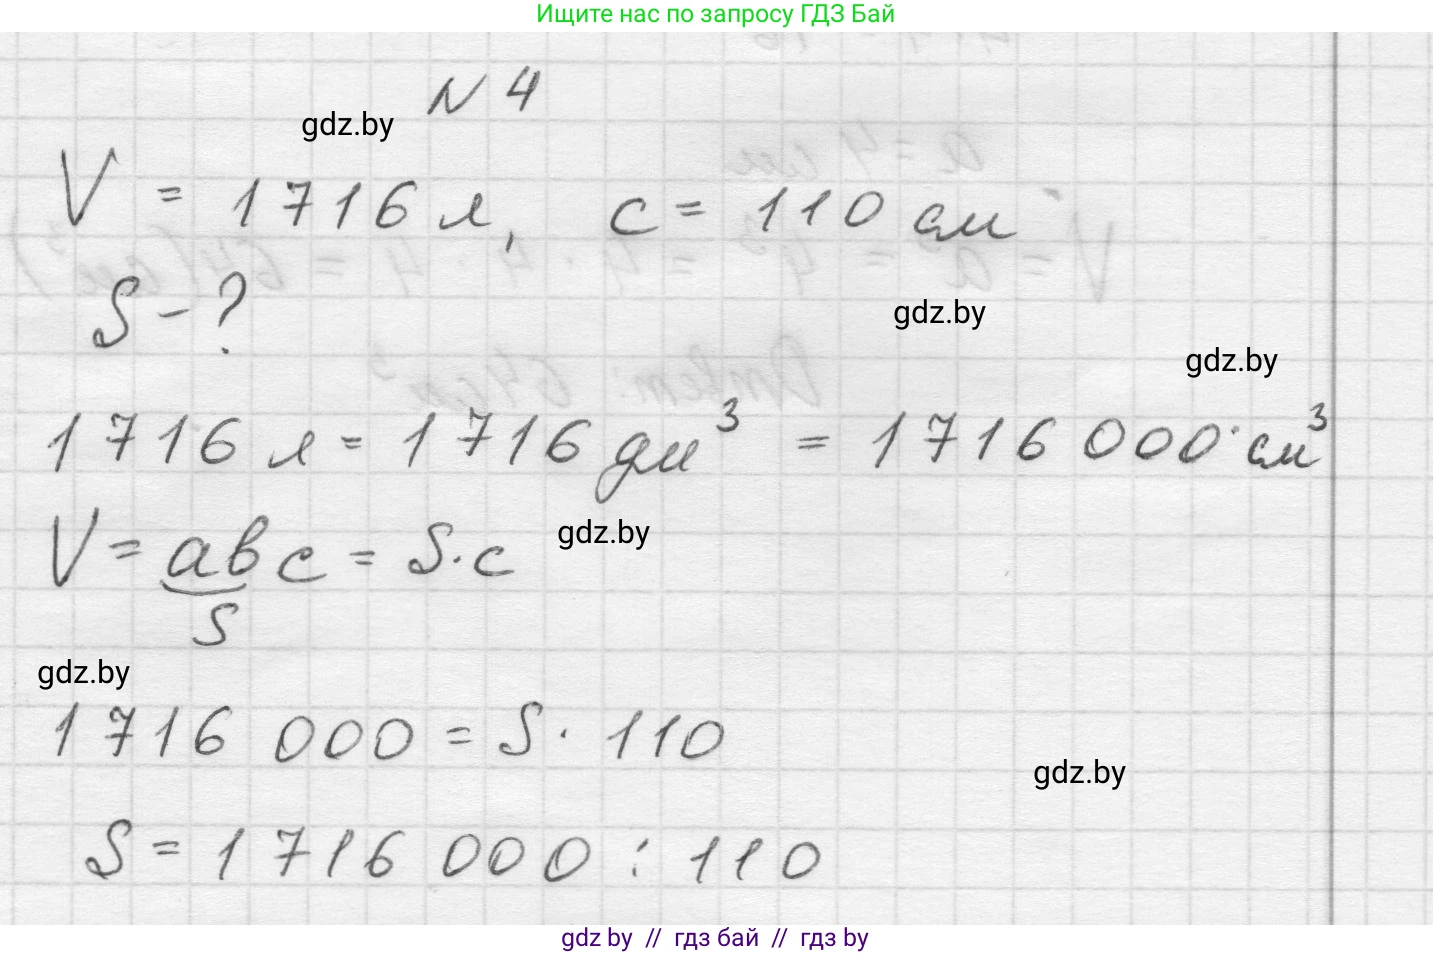 Ищите нас по запросу ГДЗ Бай
N 4
gdz.by
V = 1716 л, c = 110 см
S - ?
gdz.by
gdz.by
1716 л = 1716 дм³ = 1716 000 см³
V = abc = S·c
gdz.by
S
gdz.by
1716 000 = S · 110
gdz.by
S = 1716 000 : 110
gdz by // гдз бай // гдз by